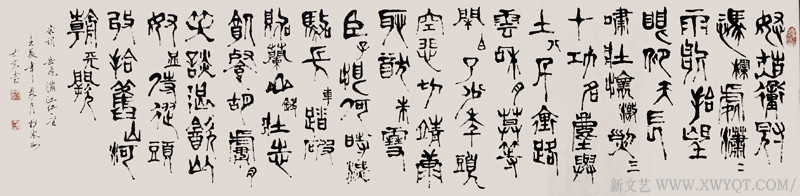 怒髮衝冠
憑欄處瀟〻
雨歇抬望
眼仰天長
嘯壯懷激烈三
十功名塵與
土八千里路
雲和月莫等
閒白了少年頭
空悲切靖康
恥猶未雪
臣子恨何時滅
駕長車踏破
賀蘭山缺壯志
飢餐胡虜
笑談渴飲匈
奴血待從頭
收拾舊山河
朝天闕
宋詞岳飛滿江紅
壬辰年
新文艺 WWW.XWYQT.COM/